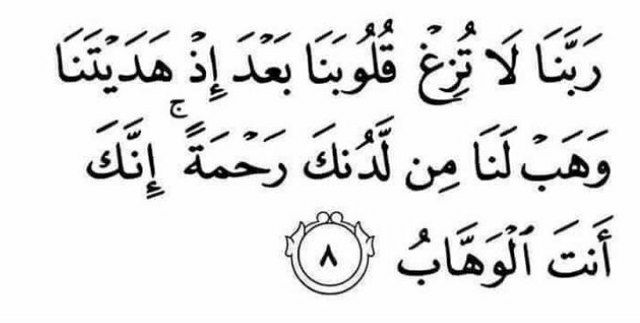 رَبَّنَا لَا تُزِغْ قُلُوبَنَا بَعْدَ إِذْ هَدَيْتَنَا
وَهَبْ لَنَا مِن لَّدُنكَ رَحْمَةً ۚ إِنَّكَ
أَنتَ ٱلْوَهَّابُ ٨